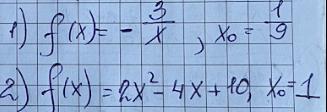 1) f(x) = - 3/x , x₀ = 1/9
2) f(x) = 2x² - 4x + 10, x₀ = 1